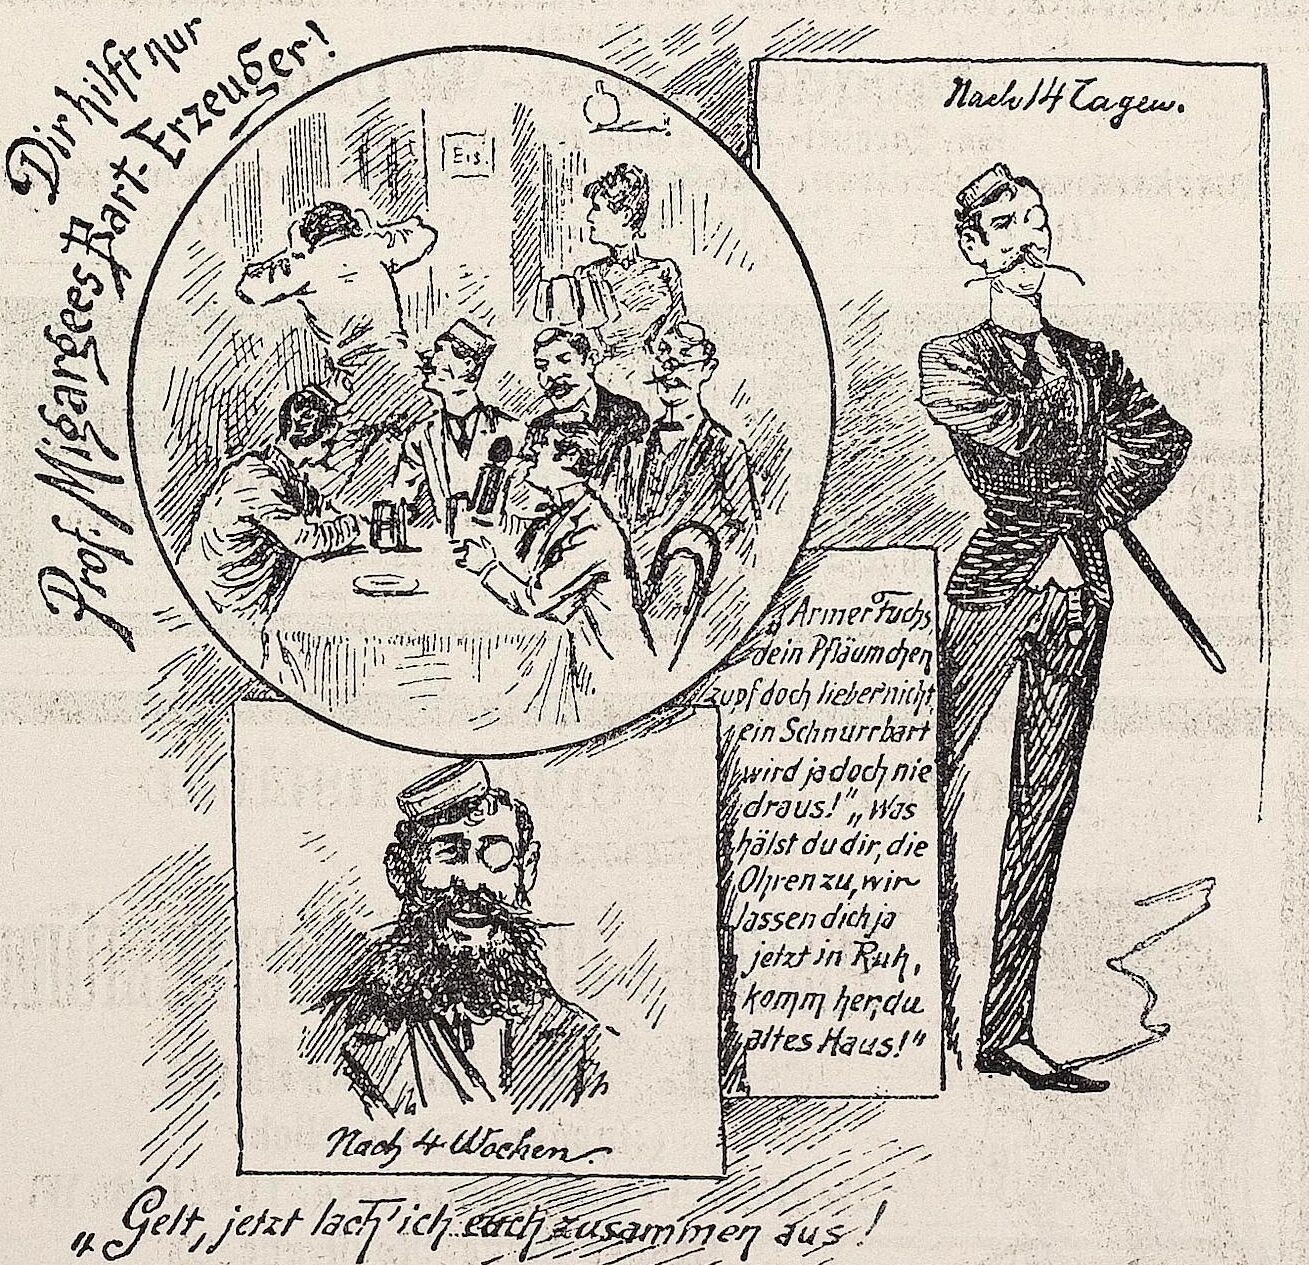 Dir hilft nur
Prof. Migargees Bart-Erzeuger!
Eis.
Nach 14 Tagen.
„Armer Fuchs
dein Pfläumchen
zupf doch lieber nicht
ein Schnurrbart
wird ja doch nie
draus!" „Was
hälst du dir, die
Ohren zu, wir
lassen dich ja
jetzt in Ruh,
komm her, du
altes Haus!"
Nach 4 Wochen.
„Gelt, jetzt lach' ich euch zusammen aus!